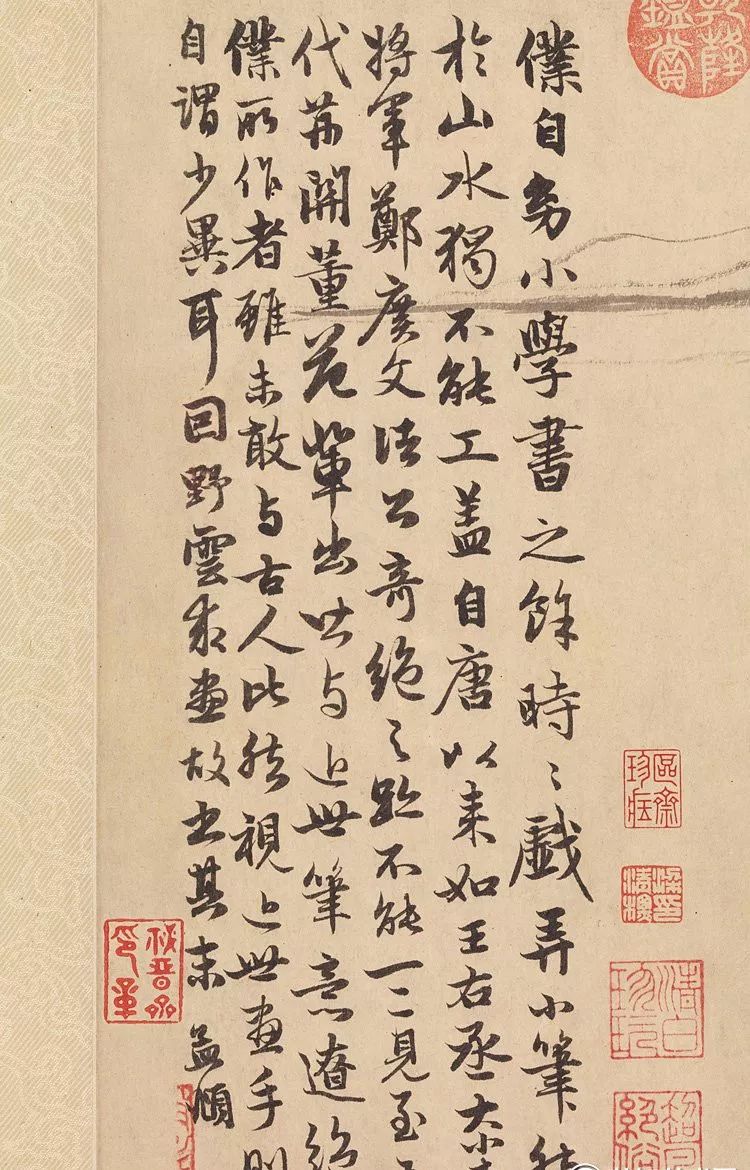 僕自幼小學書之餘時〻戲弄小筆然
於山水獨不能工蓋自唐以來如王右丞大小
將軍鄭廣文諸公奇絕之跡不能一二見至
代荊關董范輩出皆與近世筆意遼絕
僕所作者雖未敢與古人比然視近世畫手則
自謂少異耳因野雲求畫故書其末 孟頫